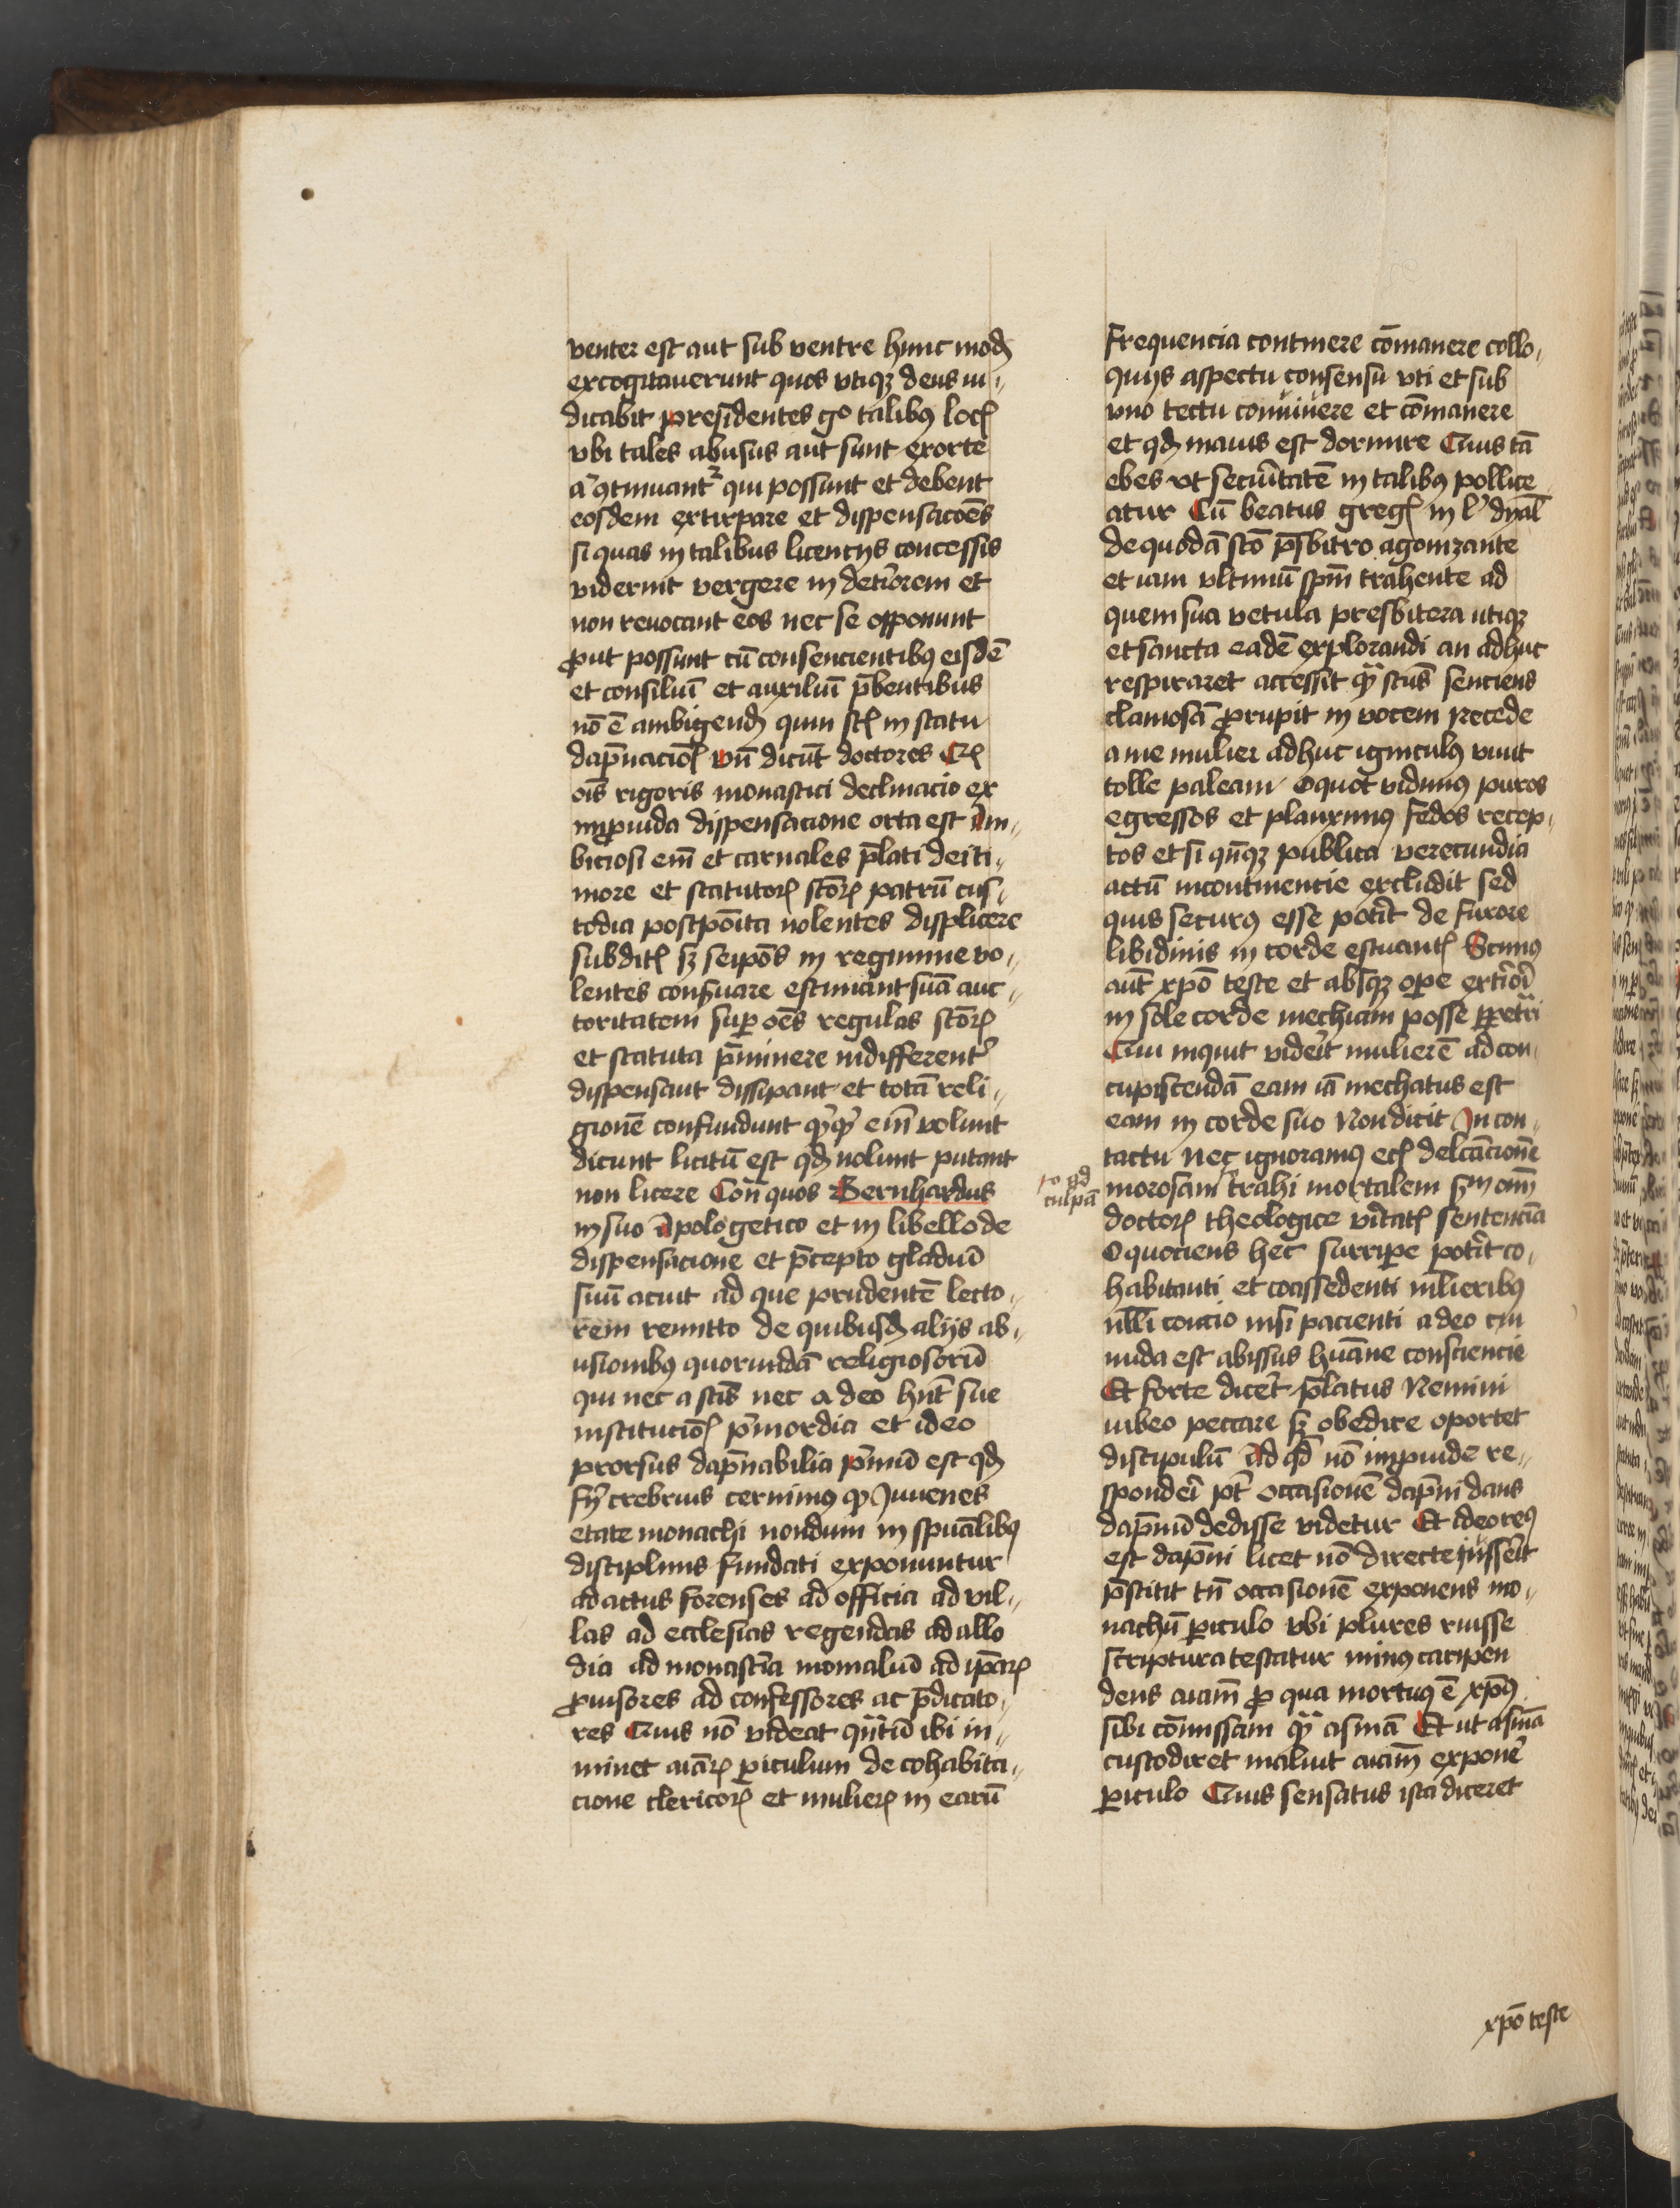 venter est aut sub ventre hunc modꝫ
excogitauerunt quos vtiqꝫ deus iu-
dicabit presidentes gͦ talibꝫ locꝭ
vbi tales abusus aut sunt exorte
aͭ ꝯtinuantᷣ qui possunt et debent
eosdem extirpare et dispensacōes
si quas in talibus licencijs concessis
viderint vergere in detiorem et
non reuocant eos nec se opponunt
ꝓut possunt cū consencientibꝫ eisdē
et consiliū et auxiliū p̄bentibus
nō ē ambigendꝫ quin sꝉ in statu
dāpnacioꝭ vn̄ dicūt doctores
oīs rigoris monastici declinacio ex
inꝓuida dispensacione orta est Am-
biciosi em̄ et carnales p̄lati dei ti-
more et statutoꝝ sc̄oꝝ patrū cus-
todia postpōita nolentes displicere
subditꝭ sꝫ seipōs in regimine vo-
lentes conẜuare estimant suā auc-
toritatem suꝑ oēs regulas sc̄oꝝ
et statuta p̄minere indifferentᷣ
dispensant dissipant et totā reli-
gionē confundunt em̄ volunt
dicunt licitū est qd̄ nolunt putant
non licere Con̄ quos Bernhardus
in suo Apologetico et in libello de
dispensacione et p̄cepto gladiū
suū acuit ad que prudentē lecto-
rem remitto de quibusdꝫ alijs ab-
usionibꝫ quorundā religiosorū
qui nec a sc̄is nec a deo hn̄t sue
institucioꝭ pᷓmordia et ideo
prorsus dāpnabilia pᷓmū est qd̄
crebrius cernimus ꝙ Iuuenes
etate monachi nondum in spūalibꝫ
disciplinis fundati exponuntur
ad actus forenses ad officia ad vil-
las ad ecclesias regendas ad allo
dia ad monastīa monialiū ad ipāꝝ
ꝓuisores ad confessores ac p̄dicato-
res Quis nō videat qn̄tū ibi in-
minet aīaꝝ ꝑiculum de cohabita-
cione clericoꝝ et mulieꝝ in earū
frequencia continere cōmanere collo-
quijs aspectu consensu vti et sub
vno tectu conuiuere et cōmanere
et qd̄ maius est dormire Quis tā
ebes vt securitatē in talibꝫ pollice
atur Cū beatus gregꝭ in lᵒ dyal̄
de quodā sc̄o p̄sbitro agonizante
et iam vltimū sp̄m trahente ad
quem sua vetula presbitera utiqꝫ
et sancta eadē explorandi an adhuc
respiraret accessit qᷓ scūs senciens
clamosā ꝓrupit in vocem Recede
a me mulier adhuc igniculꝫ viuit
tolle paleam O quot vidimꝫ puros
egressos et planximꝫ fedos recep-
tos et si qn̄qꝫ publica verecundia
actū incontinencie excludit sed
quis securꝫ esse potᷣit de furore
libidinis in corde estuantꝭ Scimꝫ
aūt xpō teste et absqꝫ oꝑe extᷣiori
in sole corde mechiam posse ꝑpetᷓri
Qui inquit viderit mulierē ad con-
cupiscendā eam iā mechatus est
eam in corde suo Non dicit In con-
tactu Nec ignoramꝫ ecꝭ delc̄acionē
morosam trahi mortalem sm̄ om̄
ro ad
culpā
doctoꝝ theologice vᷣitatꝭ sentenciā
O quociens hec surriꝑe potᷣit co-
habitanti et coassedenti mlieribꝫ
nlli concio nisi pacienti a deo cui
nuda est abissus huāne consciencie
Et forte dicet p̄latus Nemini
iubeo peccare sꝫ obedire oportet
discipulū Ad qd̄ nō inꝓuide re-
sponderi pt̄ occasionē dāpni dans
dāpnū dedisse videtur Et ideo reꝫ
est dāpni licet nō directe iussit
p̄stitit tn̄ occasionē exponens mo-
nachū ꝑiculo vbi plures ruisse
scriptura testatur minꝫ caripen
dens aīam ꝓ qua mortuꝫ ē xpūs
sibi cōmissam qᷓ asinā Et ut asinā
custodiret maluit aīam exponeᷣ
ꝑiculo Quis sensatus ista diceret
xpō teste